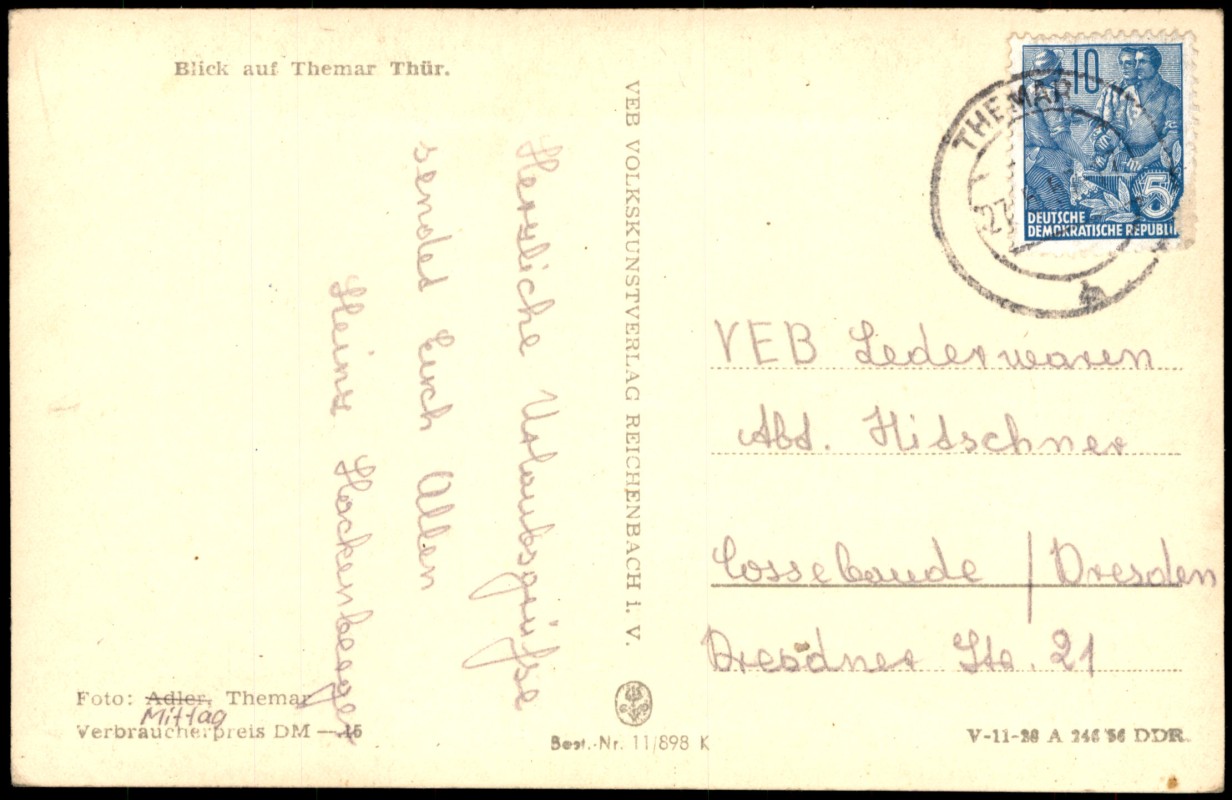 Blick auf Themar Thür.
Herzliche Urlaubsgrüße
sendet Euch Allen
Heinz Hackenberger
Foto: Adler, Themar
Mittag
Verbraucherpreis DM —.15
VEB VOLKSKUNSTVERLAG REICHENBACH i. V.
Best.-Nr. 11/898 K
10
5
DEUTSCHE
DEMOKRATISCHE REPUBLIK
THEMAR
27
VEB Lederwaren
Abt. Hitschner
Cossebaude / Dresden
Dresdner Str. 21
V-11-28 A 246/56 DDR.